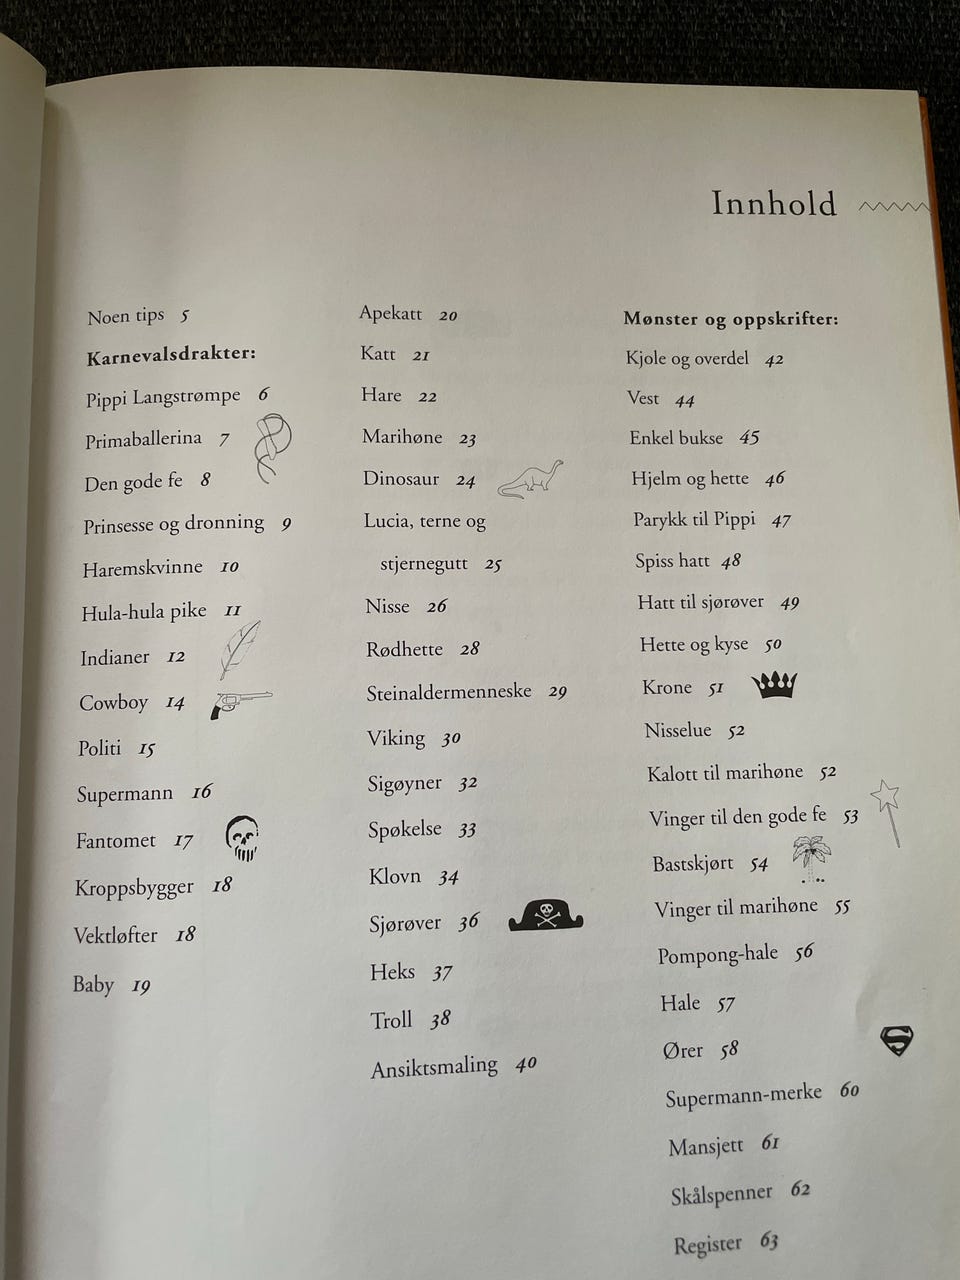 Innhold
Noen tips 5
Karnevalsdrakter:
Pippi Langstrømpe 6
Primaballerina 7
Den gode fe 8
Prinsesse og dronning 9
Haremskvinne 10
Hula-hula pike 11
Indianer 12
Cowboy 14
Politi 15
Supermann 16
Fantomet 17
Kroppsbygger 18
Vektløfter 18
Baby 19
Apekatt 20
Katt 21
Hare 22
Marihøne 23
Dinosaur 24
Lucia, terne og
stjernegutt 25
Nisse 26
Rødhette 28
Steinaldermenneske 29
Viking 30
Sigøyner 32
Spøkelse 33
Klovn 34
Sjørøver 36
Heks 37
Troll 38
Ansiktsmaling 40
Mønster og oppskrifter:
Kjole og overdel 42
Vest 44
Enkel bukse 45
Hjelm og hette 46
Parykk til Pippi 47
Spiss hatt 48
Hatt til sjørøver 49
Hette og kyse 50
Krone 51
Nisselue 52
Kalott til marihøne 52
Vinger til den gode fe 53
Bastskjørt 54
Vinger til marihøne 55
Pompong-hale 56
Hale 57
Ører 58
S
Supermann-merke 60
Mansjett 61
Skålspenner 62
Register 63